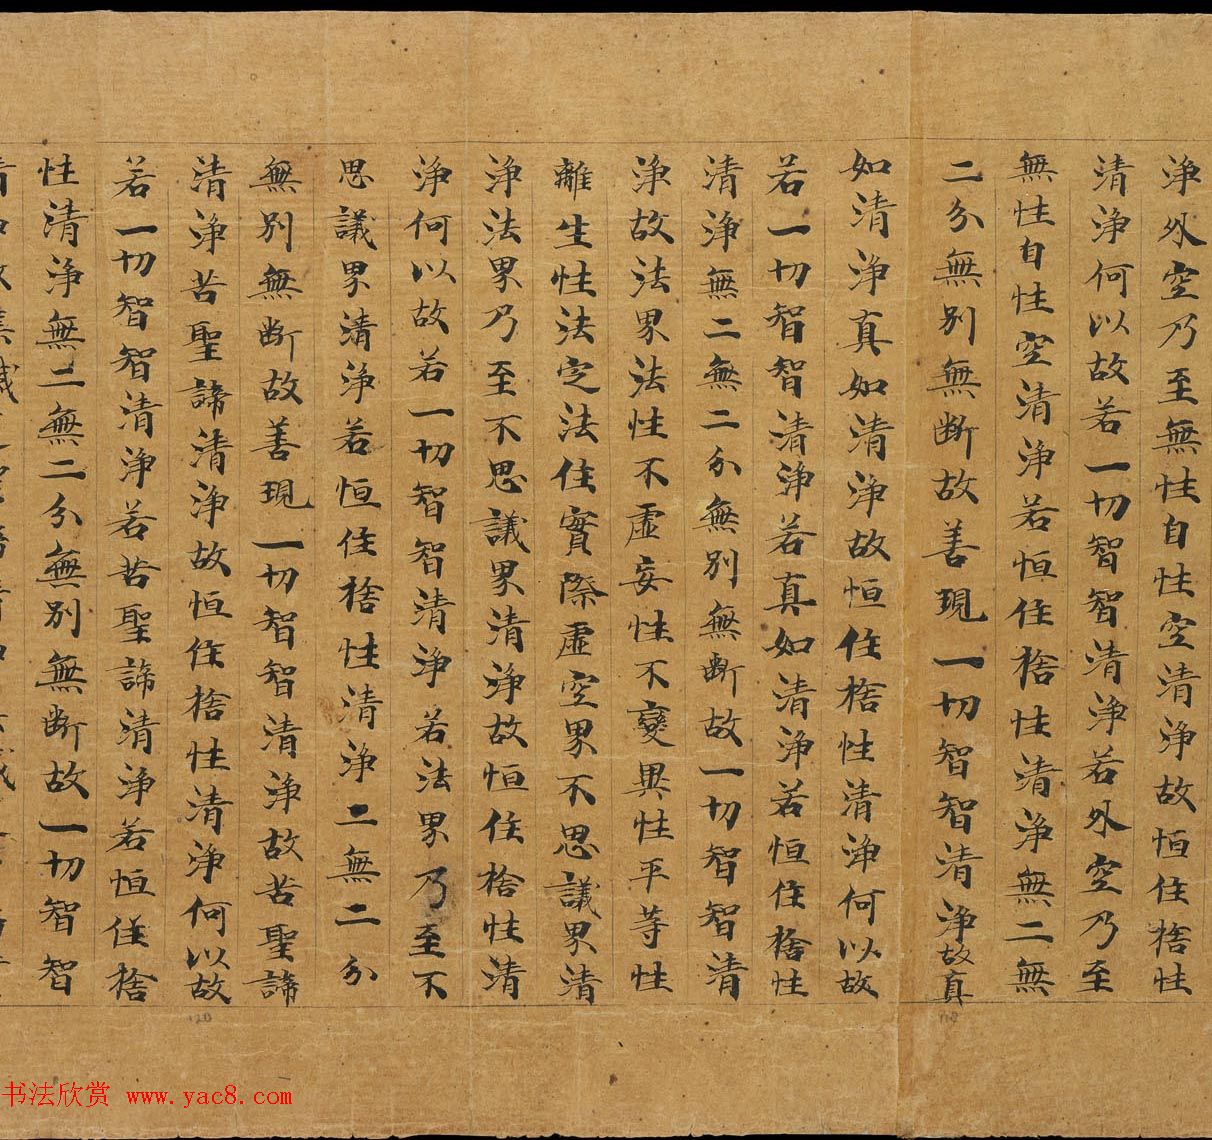 淨外空乃至無性自性空清淨故恒住捨性
清淨何以故若一切智智清淨若外空乃至
無性自性空清淨若恒住捨性清淨無二無
二分無別無斷故善現一切智智清淨故真
如清淨真如清淨故恒住捨性清淨何以故
若一切智智清淨若真如清淨若恒住捨性
清淨無二無二分無別無斷故一切智智清
淨故法界法性不虛妄性不變異性平等性
離生性法定法住實際虛空界不思議界清
淨法界乃至不思議界清淨故恒住捨性清
淨何以故若一切智智清淨若法界乃至不
思議界清淨若恒住捨性清淨無二無二分
無別無斷故善現一切智智清淨故苦聖諦
清淨苦聖諦清淨故恒住捨性清淨何以故
若一切智智清淨若苦聖諦清淨若恒住捨
性清淨無二無二分無別無斷故一切智智
书法欣赏 www.yac8.com